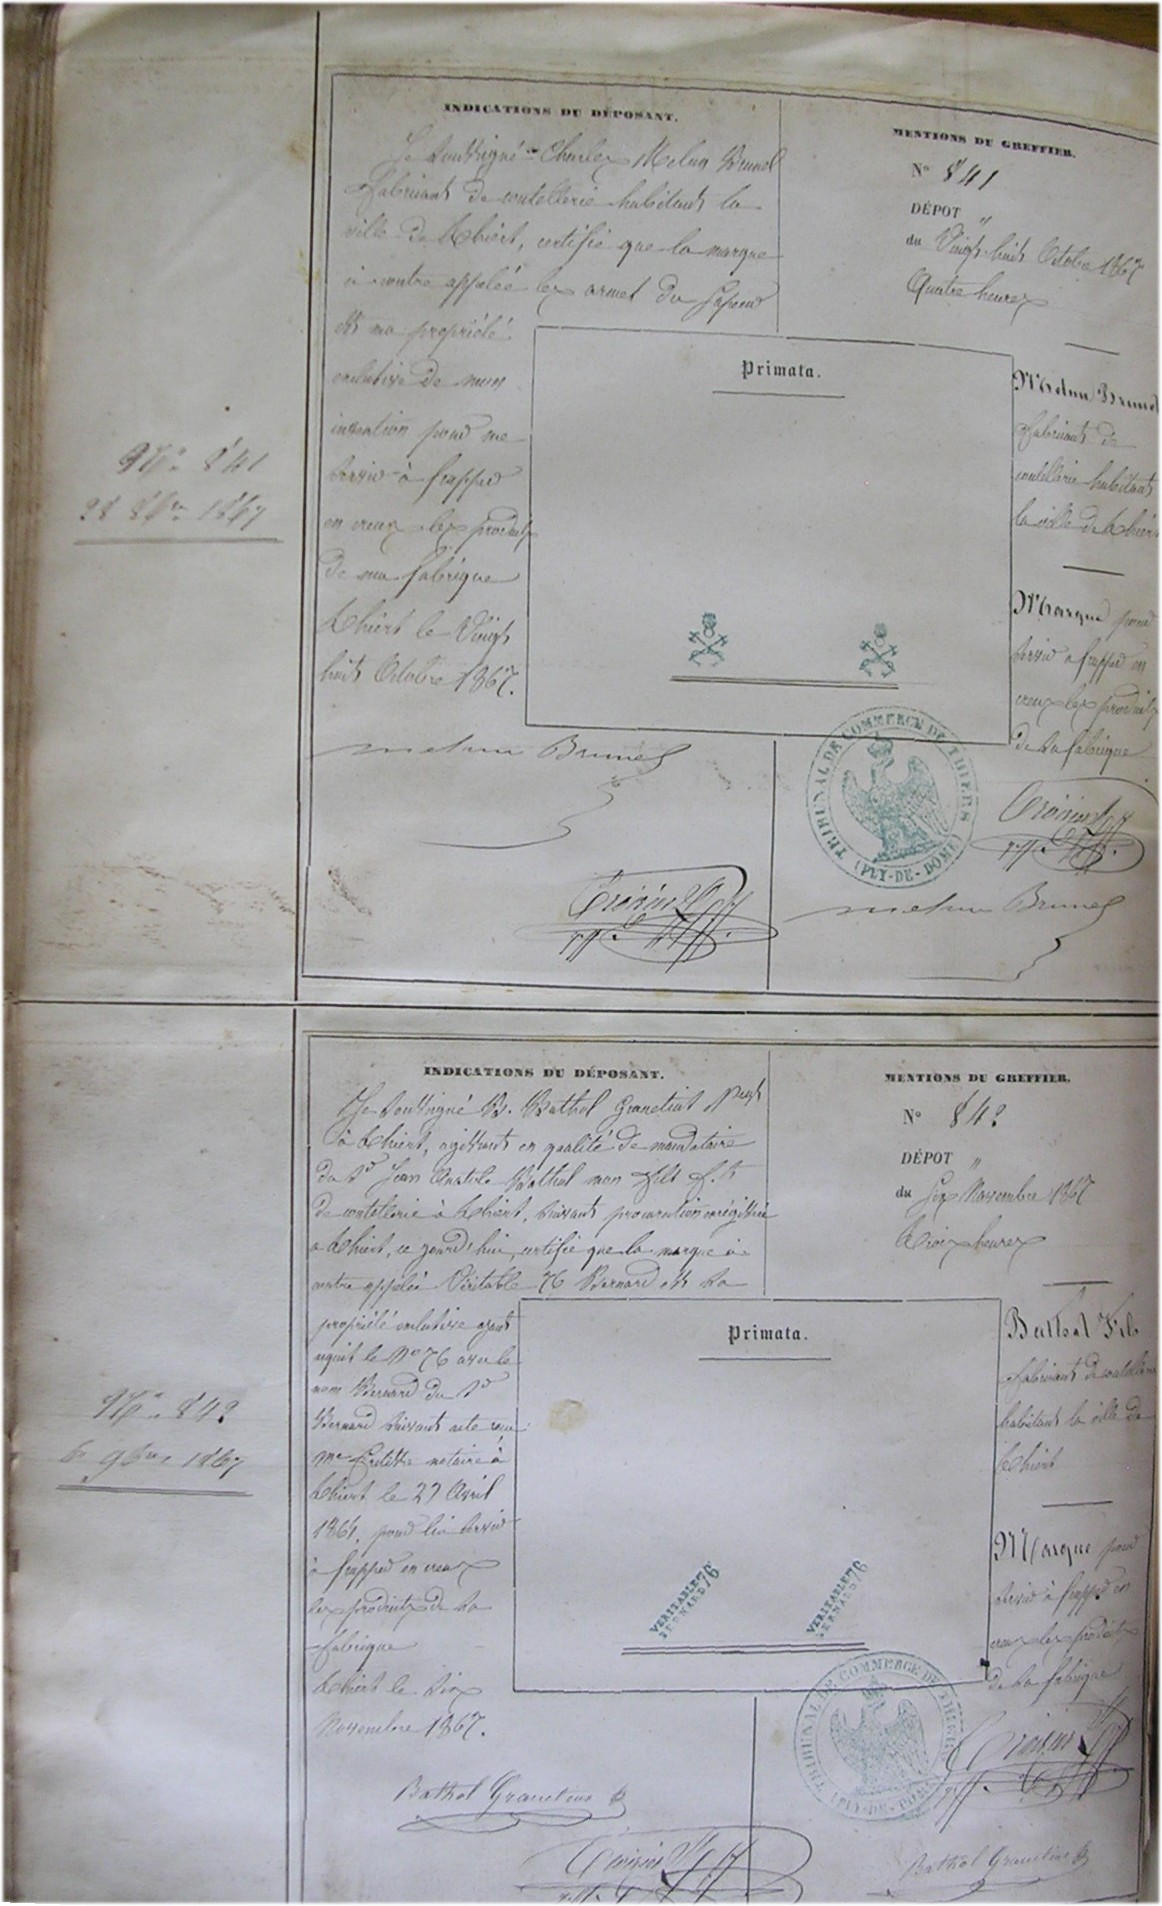 INDICATIONS DU DÉPOSANT.
Je soussigné Charles Melun Brunel
fabricant de coutellerie habitant la
ville de Thiers, certifie que la marque
ci-contre appelée les armes du Japon
est ma propriété
exclusive de mon
invention pour me
servir à frapper
en creux les produits
de ma fabrique
Thiers le Vingt
huit Octobre 1867.
melun Brunel
Nº 841
28 8bre 1867
MENTIONS DU GREFFIER.
Nº 841
DÉPOT "
du Vingt huit Octobre 1867
Quatre heures
Primata.
Melun Brunel
fabricant de
coutellerie habitant
la ville de Thiers
Marque pour
servir à frapper en
creux les produits
de sa fabrique
TRIBUNAL DE COMMERCE DE THIERS
(PUY-DE-DOME)
melun Brunel
INDICATIONS DU DÉPOSANT.
Je soussigné B. Bathol Granetias
à Thiers, agissant en qualité de mandataire
du Sr Jean Anatole Bathol mon fils f.t
de coutellerie à Thiers, suivant procuration enregistrée
à Thiers, ce jourd'hui, certifie que la marque ci-
contre appelée Véritable 76 Bernard est sa
propriété exclusive ayant
acquit le No 76 avec le
nom Bernard du Sr
Bernard suivant acte reçu
Me notaire à
Thiers le 27 Avril
1864, pour lui servir
à frapper en creux
les produits de sa
fabrique
Thiers le six
Novembre 1867.
Bathol Granetias
Nº 842
6 9bre 1867
MENTIONS DU GREFFIER.
Nº 842
DÉPOT "
du Six Novembre 1867
Trois heures
Primata.
VERITABLE 76
BERNARD
VERITABLE 76
BERNARD
Bathol Fils
fabricant de coutellerie
habitant la ville de
Thiers
Marque pour
servir à frapper en
creux les produits
de sa fabrique
TRIBUNAL DE COMMERCE DE THIERS
(PUY-DE-DOME)
Bathol Granetias